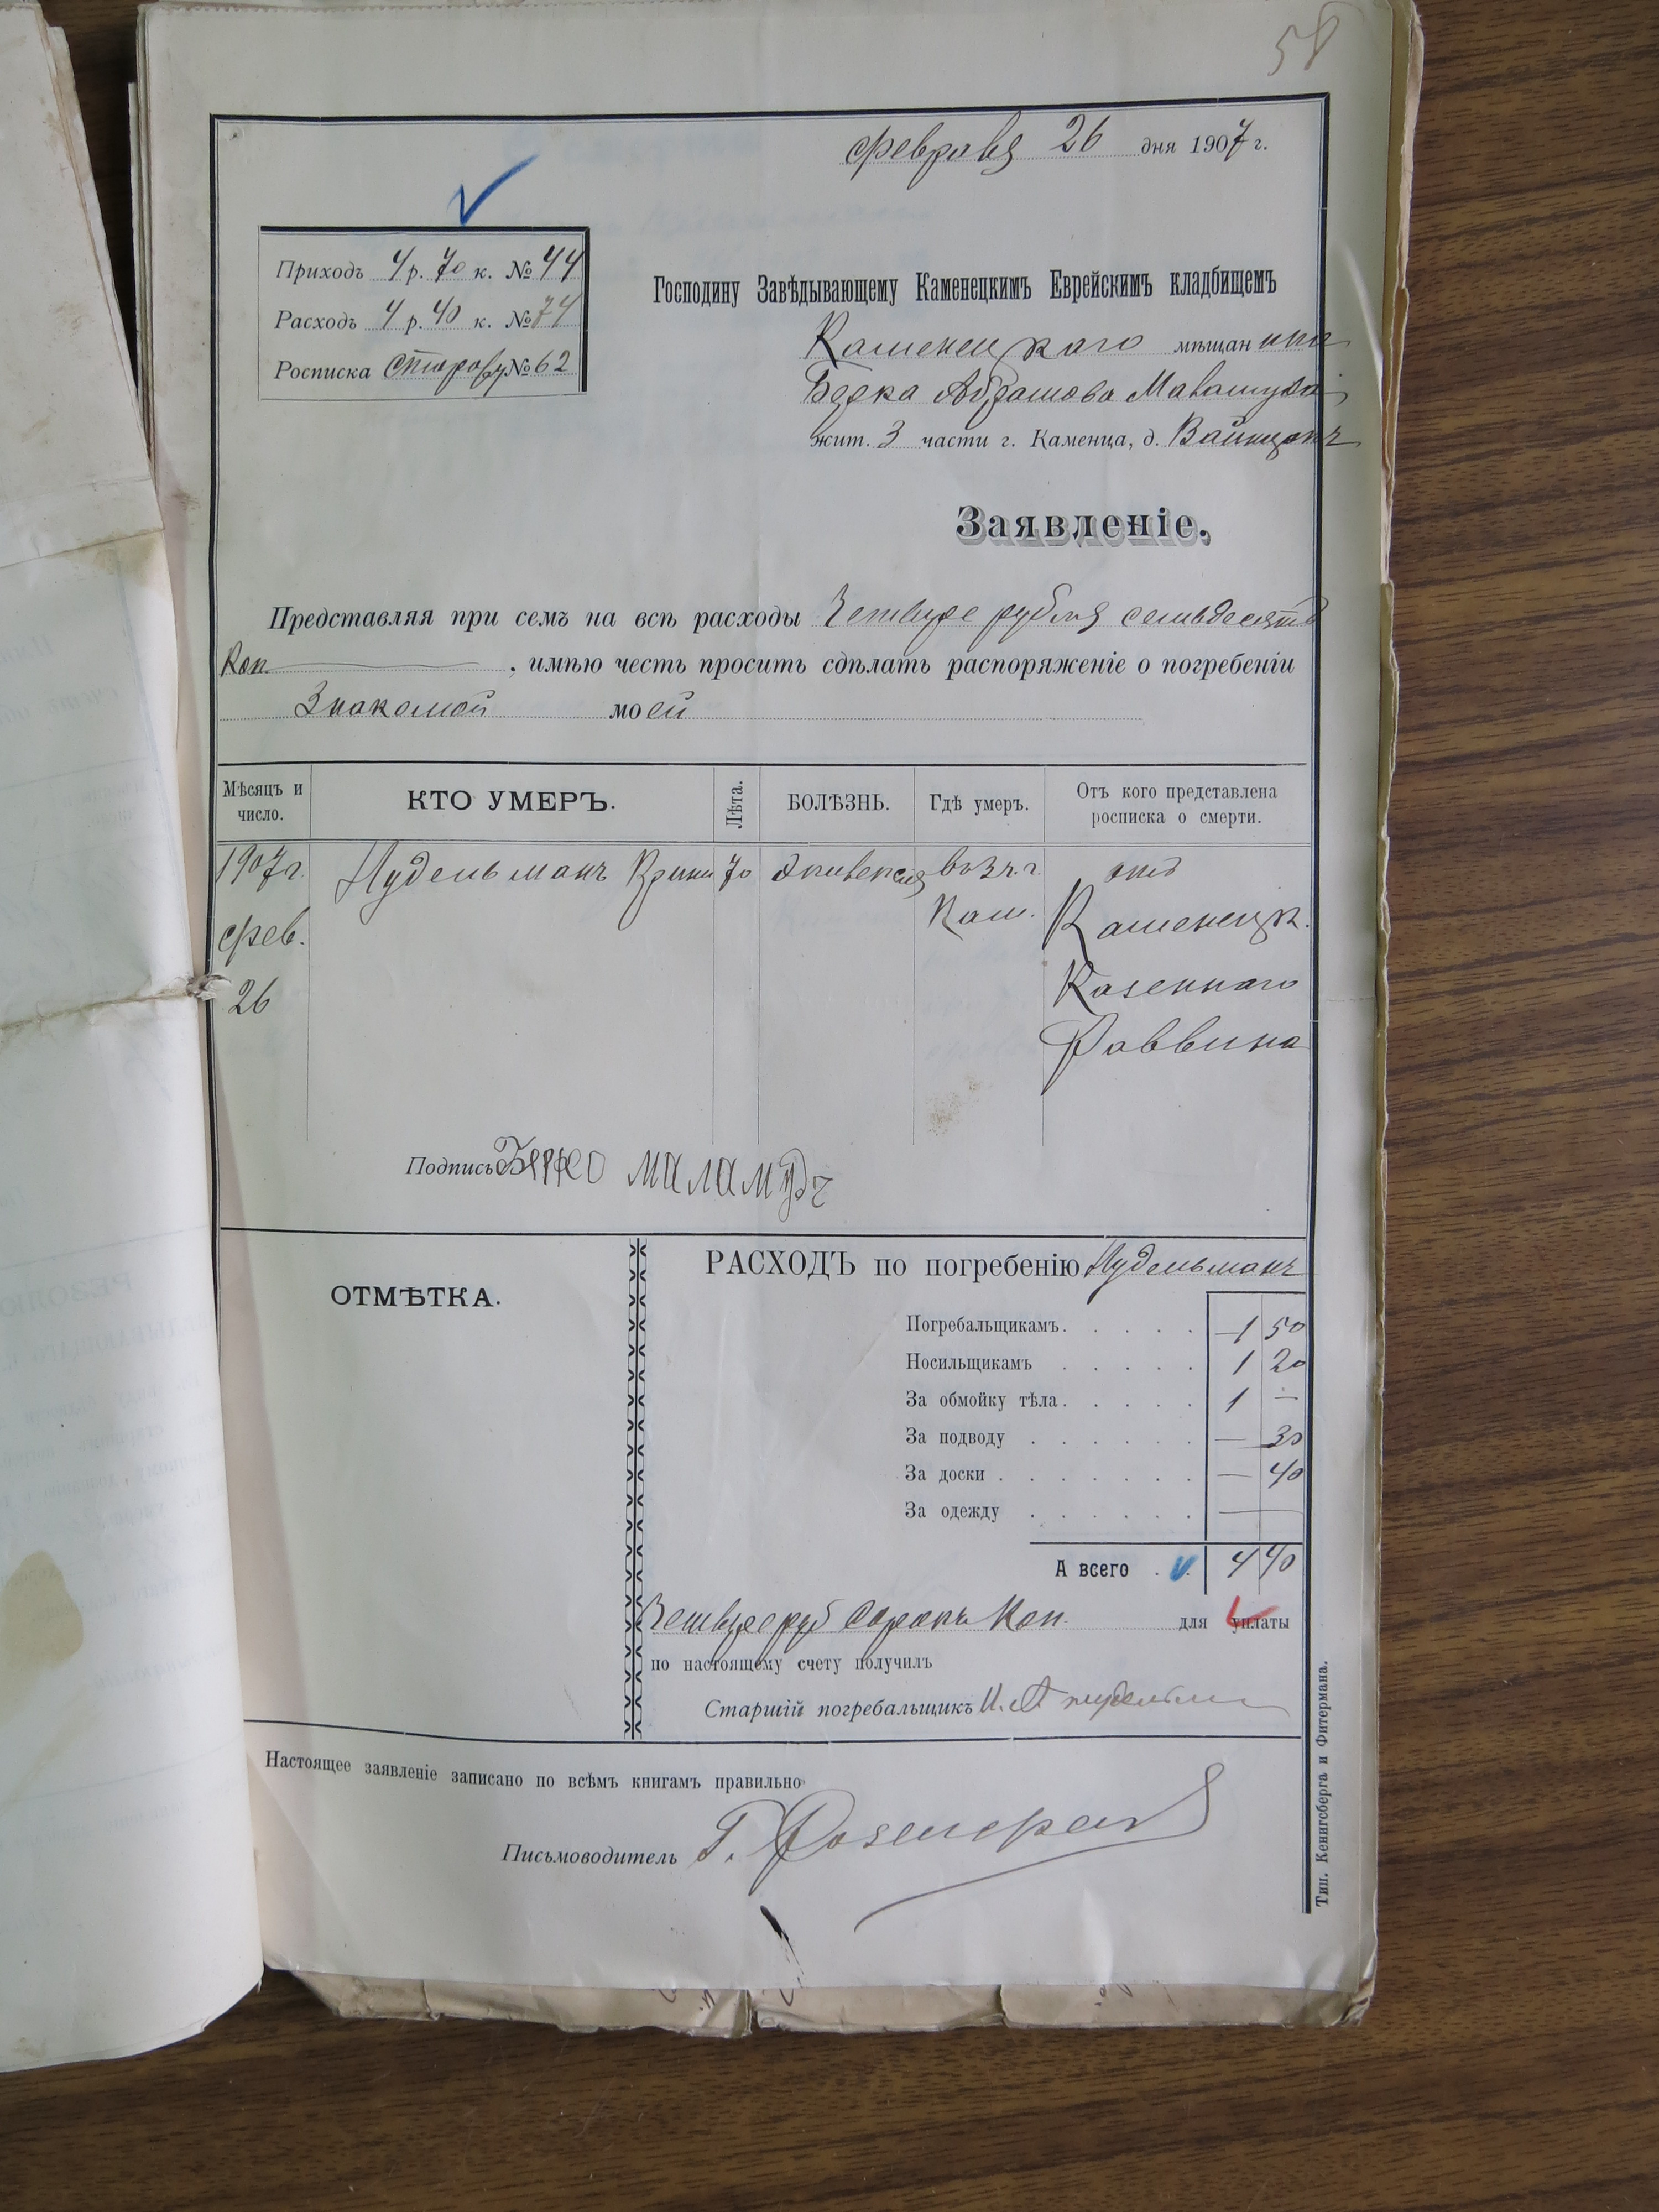 58
февраля 26 дня 1907 г.
Приходъ 4 р. 70 к. № 44
Расходъ 4 р. 40 к. № 74
Росписка № 62
Господину Завѣдывающему Каменецкимъ Еврейскимъ кладбищемъ
Каменецкаго мѣщанина
Берка Абрамова Маламуда
жит. 3 части г. Каменца, д.
Заявленіе.
Представляя при семъ на всѣ расходы Четыре рубля семьдесятъ
Коп. , имѣю честь просить сдѣлать распоряженіе о погребеніи
Знакомой моей
Мѣсяцъ и число. КТО УМЕРЪ. Лѣта. БОЛѢЗНЬ. Гдѣ умеръ. Отъ кого представлена росписка о смерти.
1907 г. Нудельманъ 70 въ 3 ч. г. отъ
фев. Кам. Каменецк.
26 Казеннаго
Раввина
Подпись Берко маламудъ
ОТМѢТКА.
РАСХОДЪ по погребенію Нудельманъ
Погребальщикамъ. . . . . 1 50
Носильщикамъ . . . . . 1 20
За обмойку тѣла. . . . . 1 —
За подводу . . . . . . — 30
За доски . . . . . . . — 40
За одежду . . . . . . — —
А всего . . 4 40
Четыре руб сорокъ Коп. для уплаты
по настоящему счету получилъ
Старшій погребальщикъ
Настоящее заявленіе записано по всѣмъ книгамъ правильно
Письмоводитель Г.
Тип. Кенигсберга и Фитермана.